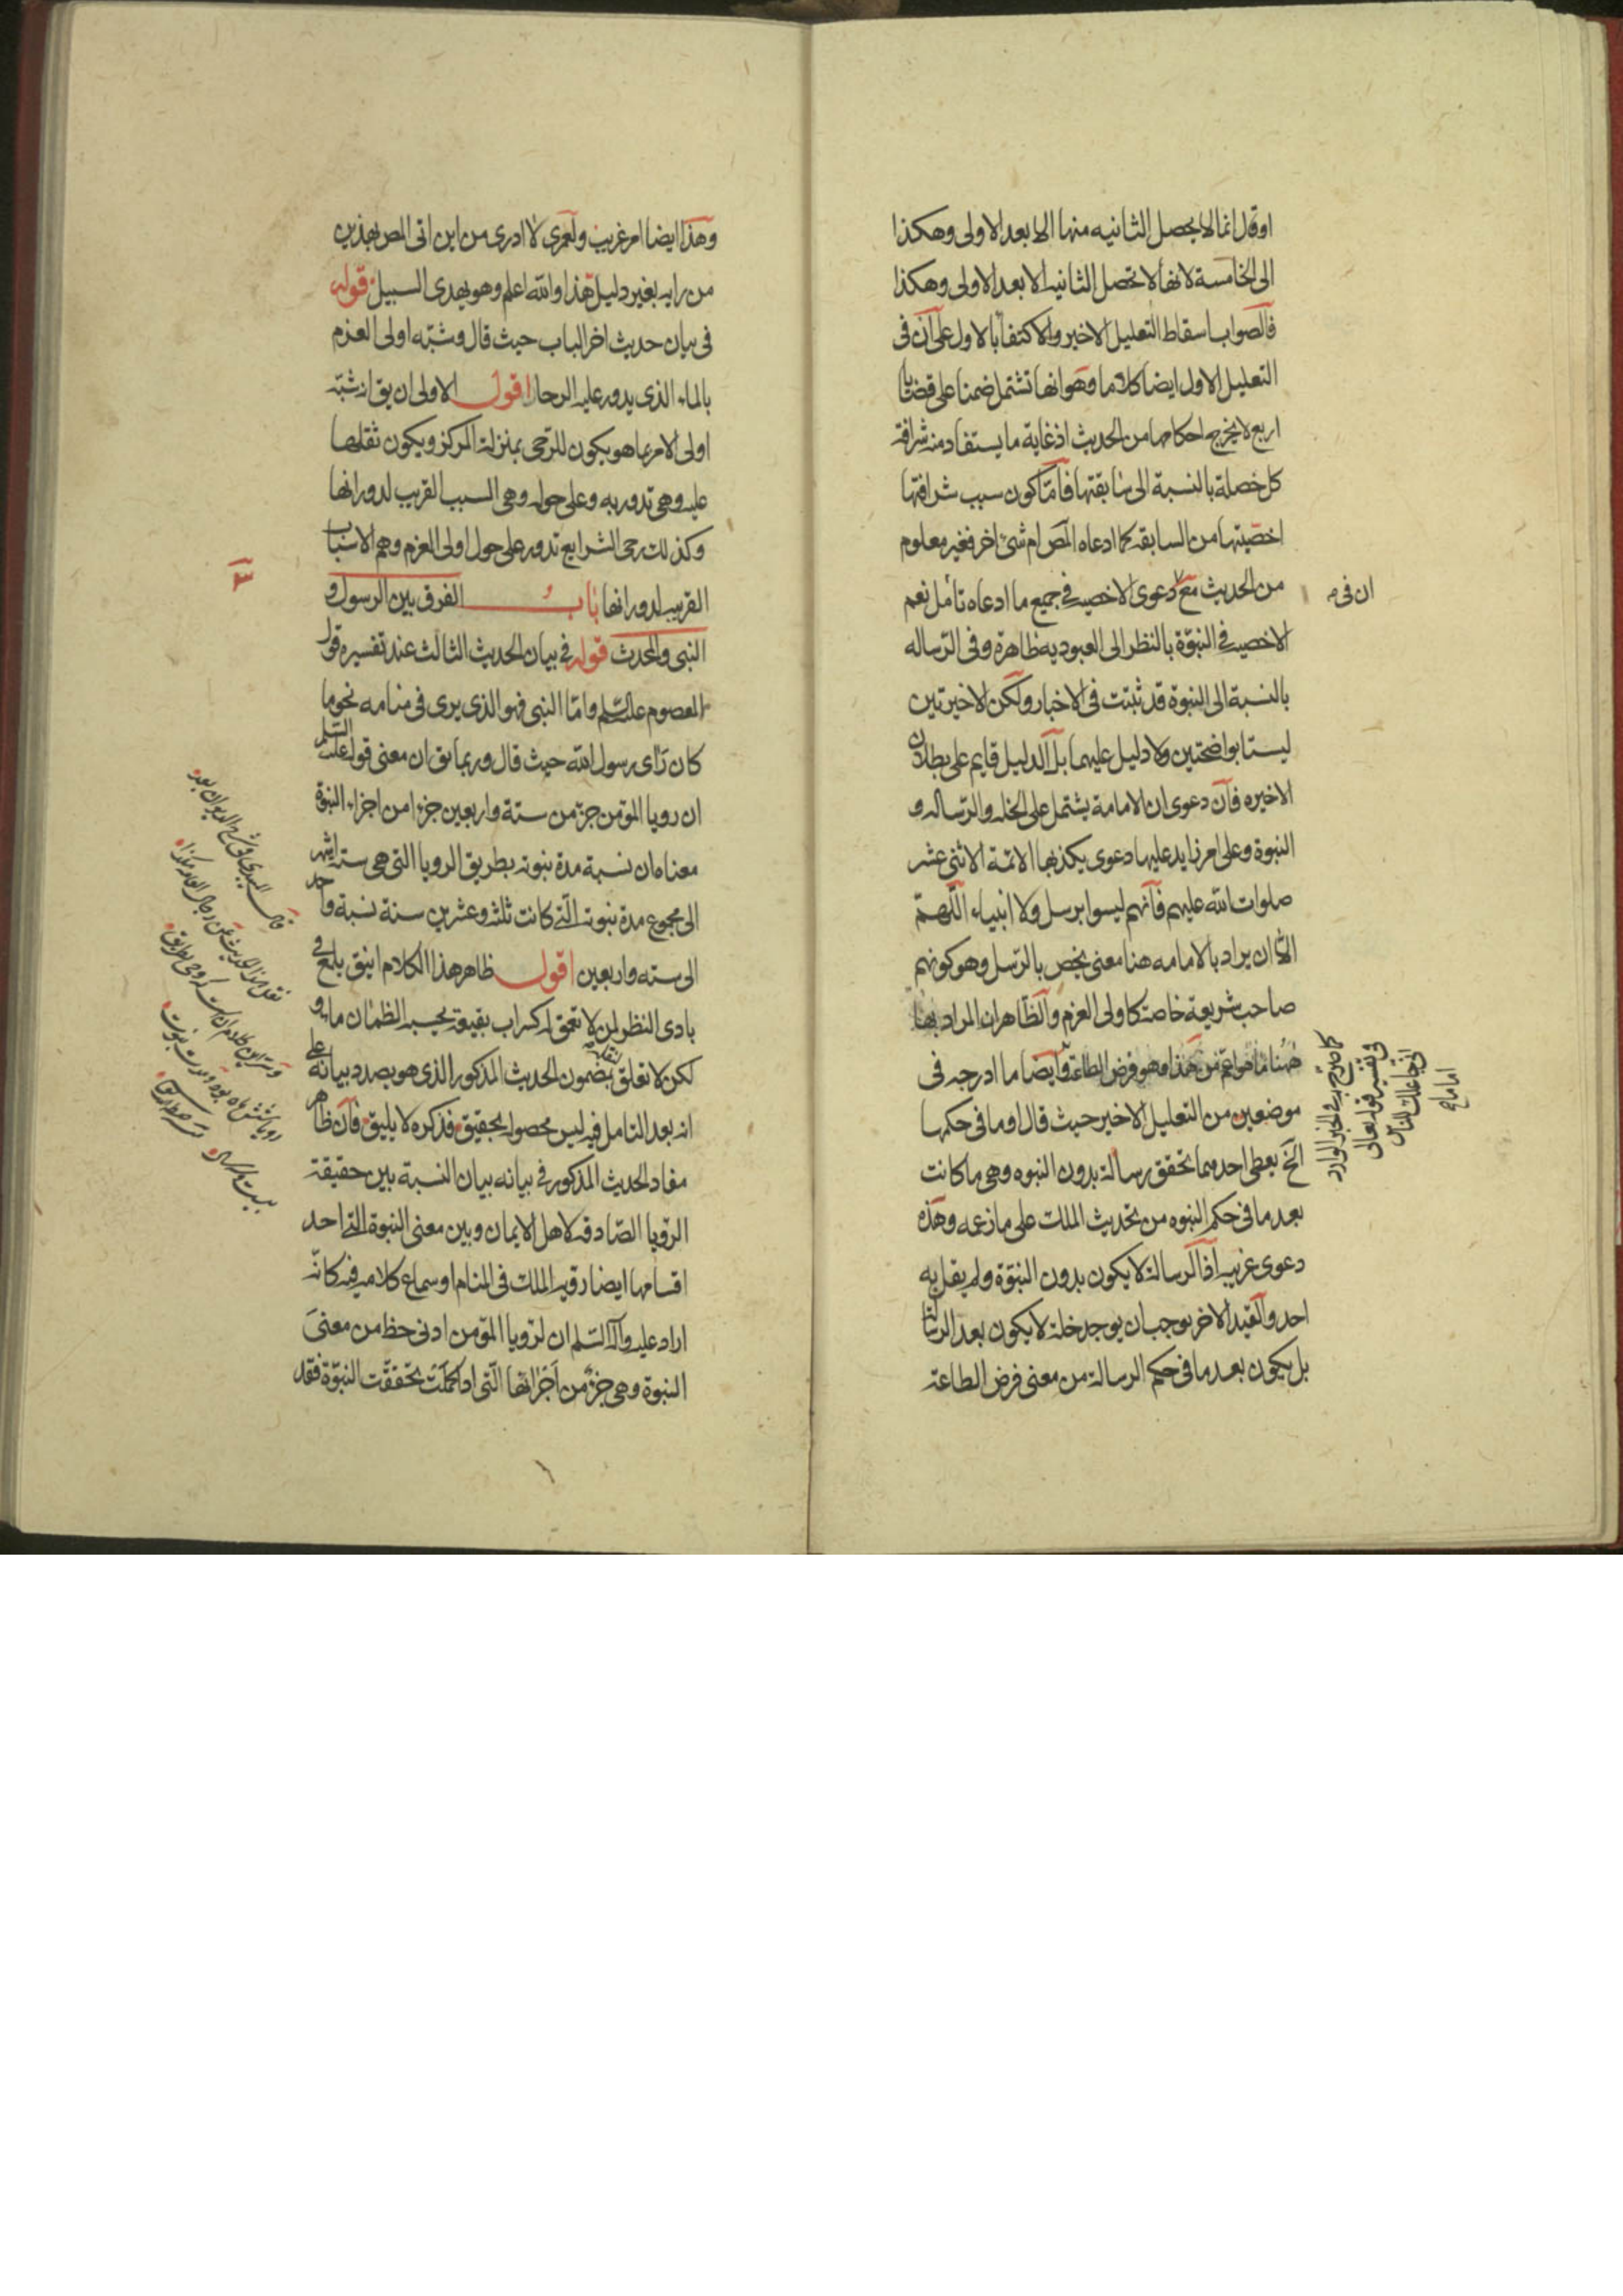 او قال انما لا يحصل الثانيه منها الا بعد الاولى وهكذا
الى الخامسة لانها لا تحصل الثانيه الا بعد الاولى وهكذا
فالصواب اسقاط التعليل الاخير والاكتفا بالاول على ان فى
التعليل الاول ايضا كلاما وهو انها تشتمل ضمنا على قضايا
اربع لا يخرج احكامها من الحديث اذ غاية ما يستفاد منه شرافة
كل خصلة بالنسبة الى سابقتها فاما كون سبب شرافتها
اخصيتها من السابقه كما ادعاه المص ام شئ اخر فغير معلوم
من الحديث مع دعوى الاخصيه فى جميع ما ادعاه تأمل نعم
ان فى
الاخصيه فى النبوة بالنظر الى العبوديه ظاهرة وفى الرساله
بالنسبة الى النبوة قد ثبتت فى الاخبار ولكن الاخيرتين
ليستا بواضحتين ولا دليل عليهما بل الدليل قايم على بطلان
الاخيره فان دعوى ان الامامة يشتمل على الخلة والرساله و
النبوة وعلى امر زايد عليها دعوى يكذبها الائمة الاثنى عشر
صلوات الله عليهم فانهم ليسوا برسل ولا انبياء اللهم
الا ان يراد بالامامه هنا معنى يخص بالرسل وهو كونهم
صاحب شريعة خاصة كاولى العزم والظاهر ان المراد بها
ههنا ما هو اعم من هذا وهو فرض الطاعة وايضا ما ادرجه فى
كما صرح به فى الخبر الوارد
فى تفسير قوله تعالى
انى جاعلك للناس
اماما
موضعين من التعليل الاخير حيث قال او ما فى حكمها
الخ يعطى احدهما تحقق رسالة بدون النبوه وهى ما كانت
بعد ما فى حكم النبوه من تحديث الملك على ما زعمه وهذه
دعوى غريبه اذ الرسالة لا يكون بدون النبوة ولم يقل به
احد والقيد الاخر يوجب ان يوجد خلة لا يكون بعد الرسالة
بل يكون بعد ما فى حكم الرسالة من معنى فرض الطاعة
وهذا ايضا امر غريب ولعمرى لا ادرى من اين اتى المص بهذين
من رايه بغير دليل هذا والله اعلم وهو يهدى السبيل قوله
فى بيان حديث اخر الباب حيث قال وشبه اولى العزم
بالماء الذى يدور عليه الرحا اقول الاولى ان يق انه شبه
اولى الامر بما هو يكون للرحى بمنزلة المركز ويكون ثقلها
عليه وهى تدور به وعلى حوله وهى السبب القريب لدورانها
وكذلك رحى الشرايع تدور على حول اولى العزم وهم الاسباب
القريبه لدورانها باب الفرق بين الرسول و
النبى والمحدث قوله فى بيان الحديث الثالث عند تفسيره قول
المعصوم عليه السلم واما النبى فهو الذى يرى فى منامه نحو ما
كان رأى رسول الله حيث قال وربما يق ان معنى قوله عليه السلم
ان رويا المؤمن جزء من ستة واربعين جزءا من اجزاء النبوة
معناه ان نسبة مدة نبوته بطريق الرويا التى هى ستة اشهر
الى مجموع مدة نبوته التى كانت ثلث وعشرين سنة نسبة واحد
الى سته واربعين اقول ظاهر هذا الكلام انيق يلمع فى
بادى النظر لمن لا تعمق له كسراب بقيعة يحسبه الظمان ماء و
لكن لا تعلق بمضمون الحديث المذكور الذى هو بصدد بيانه على
انه بعد التامل فيه ليس محصوله بحقيق فذكره لا يليق فان ظاهر
مفاد الحديث المذكور فى بيانه بيان النسبة بين حقيقة
الرؤيا الصادقه لاهل الايمان وبين معنى النبوة التى احد
اقسامها ايضا رويه الملك فى المنام او سماع كلامه فيه كانه
اراد عليه واله السلم ان لرويا المؤمن ادنى حظ من معنى
النبوة وهى جزء من اجزائها التى اذا كملت تحققت النبوة فقد